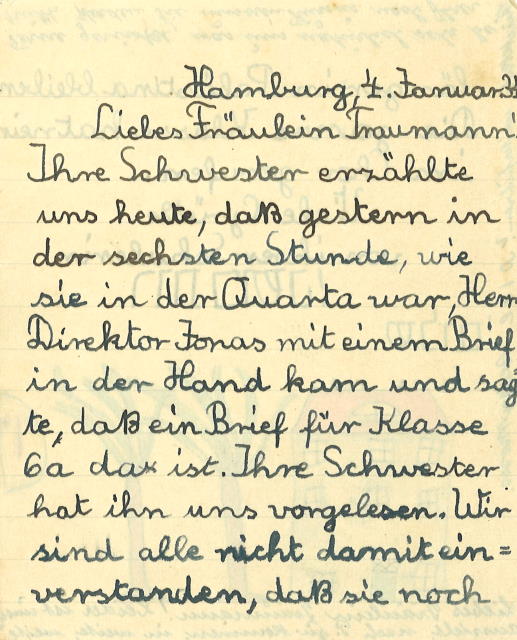 Hamburg, 4. Januar 35
Liebes Fräulein Traumann!
Ihre Schwester erzählte
uns heute, daß gestern in
der sechsten Stunde, wie
sie in der Quarta war, Herr
Direktor Jonas mit einem Brief
in der Hand kam und sag
te, daß ein Brief für Klasse
6a da ist. Ihre Schwester
hat ihn uns vorgelesen. Wir
sind alle nicht damit ein=
verstanden, daß sie noch